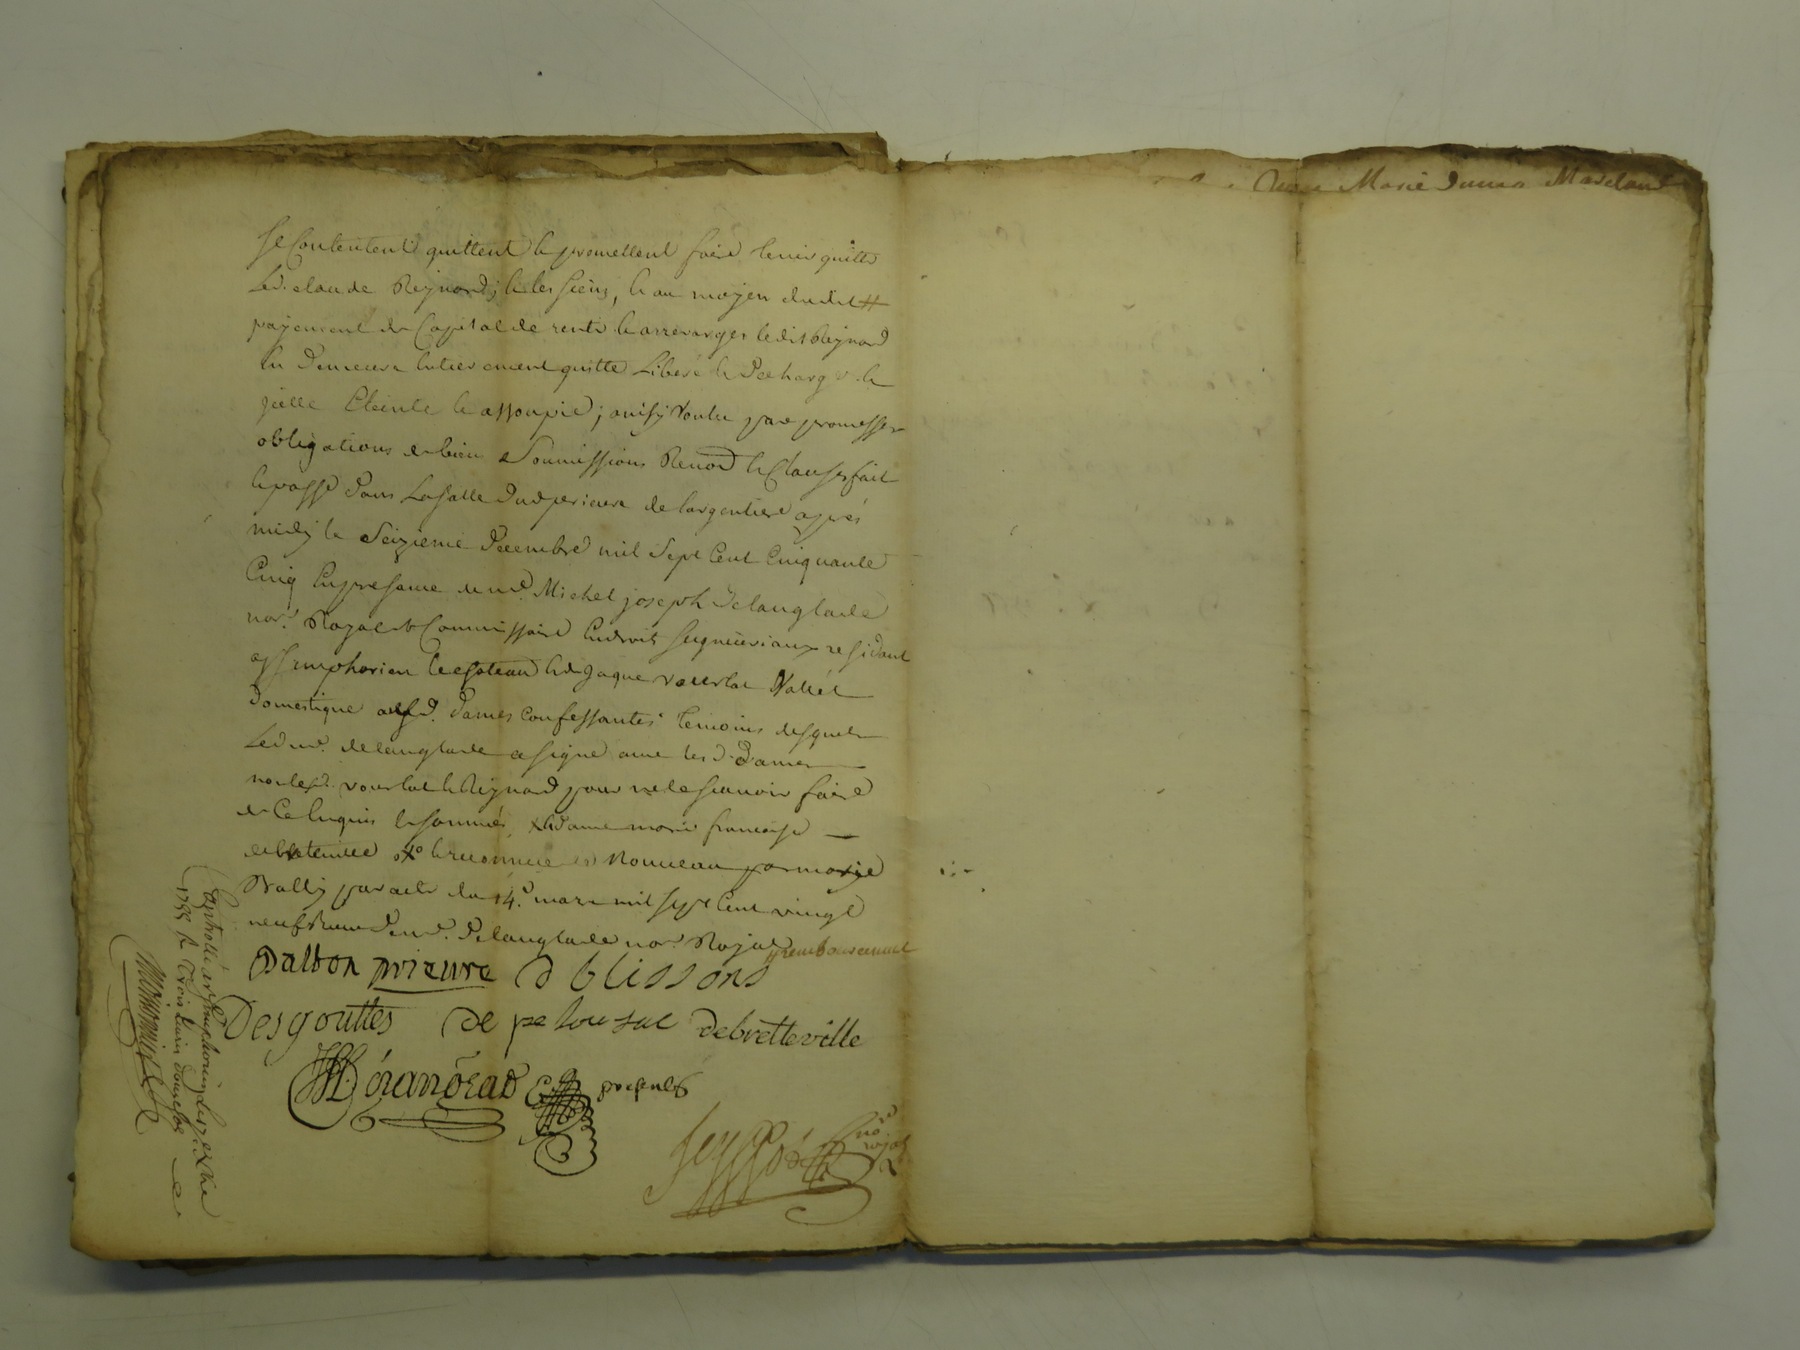 se contentent quittent & promettent faire tenir quitte
Led. claude Reynard, & les siens, & au moyen dudit #
payement de Capital de rente & arrerages ledit Reynard
En demeure Entierement quitte Liberé & Decharg &
icelle Eteinte & assoupie; ainsy Voulu par promesses
obligations de biens Soumissions Renon & Clauses fait
& passé dans La salle du prieure de largentiere aprés
midy le Seizieme Decembre mil Sept Cent Cinquante
Cinq En presance de me. Michel joseph Delanglade
nore. Royal & Commissaire En droit seigneuriaux residant
a st simphorien le chateau & de jaque vourlat Valet
domestique ausd. dames confessantes temoins desquels
Led me. delanglade a signé avec les d. Dames
non led. vourlat & Reynard pour ne le scavoir faire
de Ce Enquis & sommés, x & dame marie francoise
de bretteville x & reconnue de Nouveau par marie
Vally par acte du 14e. mars mil sept cent vingt
neuf Recu Dud me. Delanglade nore. Royal
remboursement
Dalbon prieure D blissons
Desgouttes De pelousac debretteville
Delanglade present
nore royal
Controllé a st simphorien le 27 xbre
1755 R trois Livres douze sols
Marie dumas